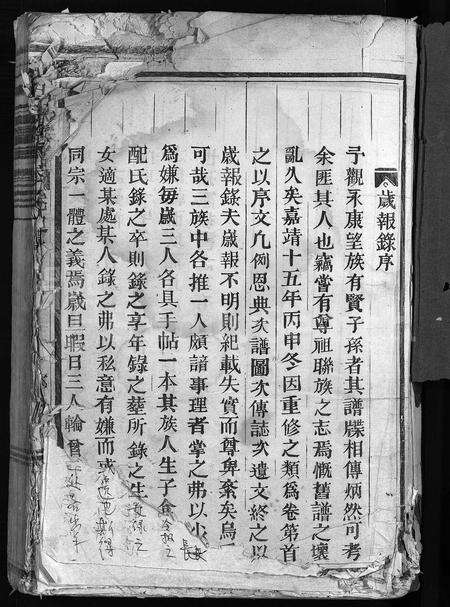 歲報錄序
予觀永康望族有賢子孫者其譜牒相傳炳然可考
余匪其人也竊嘗有尊祖聯族之志焉慨舊譜之壞
亂久矣嘉靖十五年丙申冬因重修之類為卷第首
之以序文凡例恩典次譜圖次傳誌次遺文終之以
歲報錄夫歲報不明則紀載失實而尊卑紊矣烏
可哉三族中各推一人頗諳事理者掌之弗以小
為嫌每歲三人各具手帖一本其族人生子
配氏錄之卒則錄之享年錄之塟所錄之生
女適某處某人錄之弗以私意有嫌而
同宗一體之義焉歲旦暇日三人輪